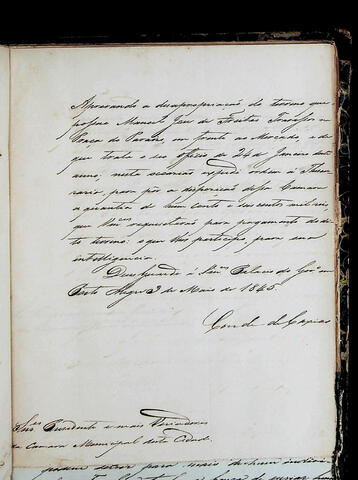 Approvando a desapropriação do terreno que
possue Manoel Joze de Freitas Travasso na
Praça do Paraizo, em frente ao Mercado, e de
que trata o seu officio de 24 de Janeiro deste
anno; nesta occasião expedi ordem á Thesou
raria, para pôr a disposição dessa Camara
a quantia de hum conto e seis centos mil reis,
que Vm.ces requisitarão para pagamento do di
to terreno: o que lhes participo, para sua
intelligencia.
Deos Guarde a Vm.ces Palacio do Gov.º em
Porto Alegre 3 de Maio de 1845.
Conde de Caxias
Snr.es Presidente e mais Vereadores
da Camara Municipal desta Cidade.
para mais